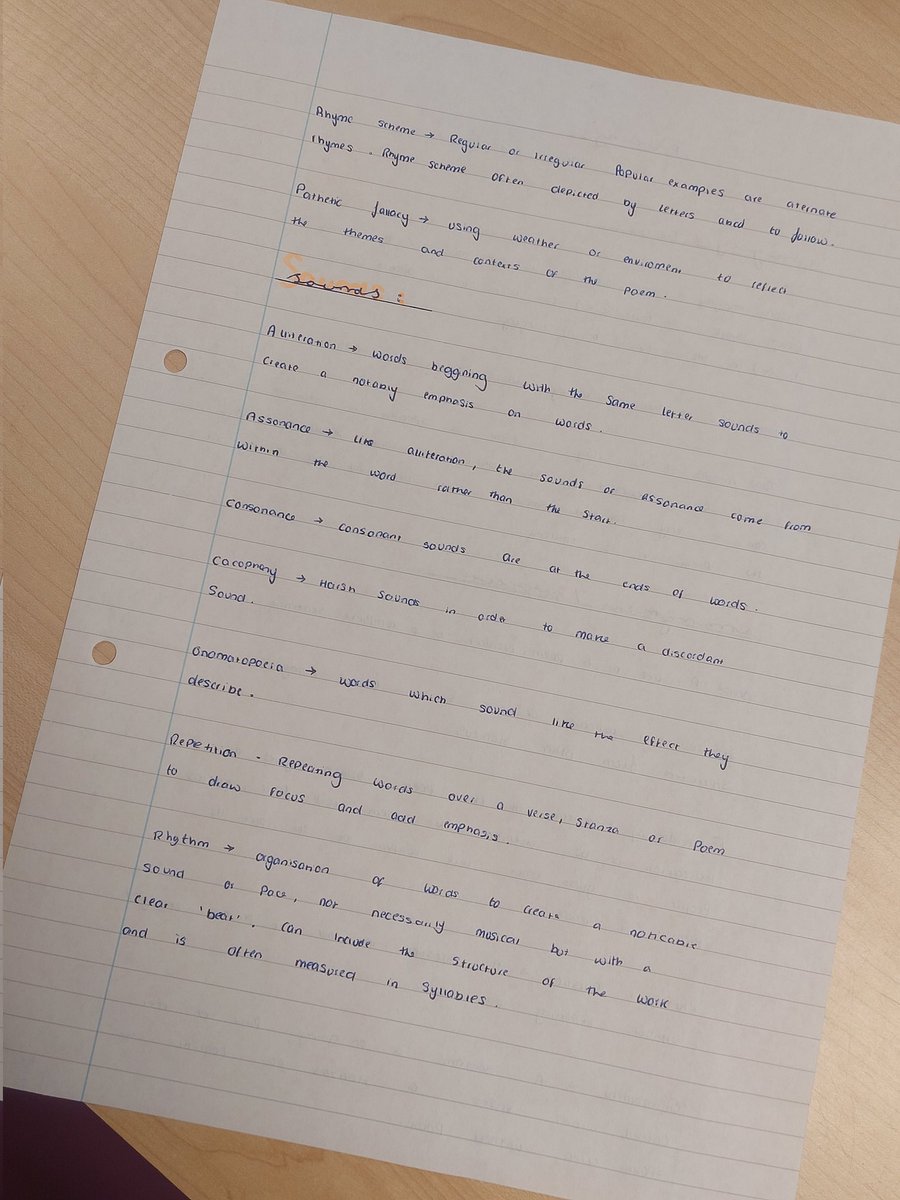 Rhyme scheme → Regular or irregular Popular examples are aternate
rhymes. Rhyme scheme often depicted by letters and to follow.
Pathetic fallacy → using weather or enviroment to reflect
the themes and contexts of the poem.
Sounds:
Alliteration → words beggning with the same letter sounds to
create a notably emphasis on words.
Assonance → like alliteration, the sounds of assonance come from
within the word rather than the start.
Consonance → consonant sounds are at the ends of words.
Cacophany → Harsh sounds in order to make a discordant
sound.
Onomatopoeia → words which sound like the effect they
describe.
Repetition - Repeating words over a verse, stanza or poem
to draw focus and add emphasis.
Rhythm → organisation of words to create a noticable
sound or pace, not necessarily musical but with a
clear 'beat'. can include the structure of the work
and is often measured in syllables.